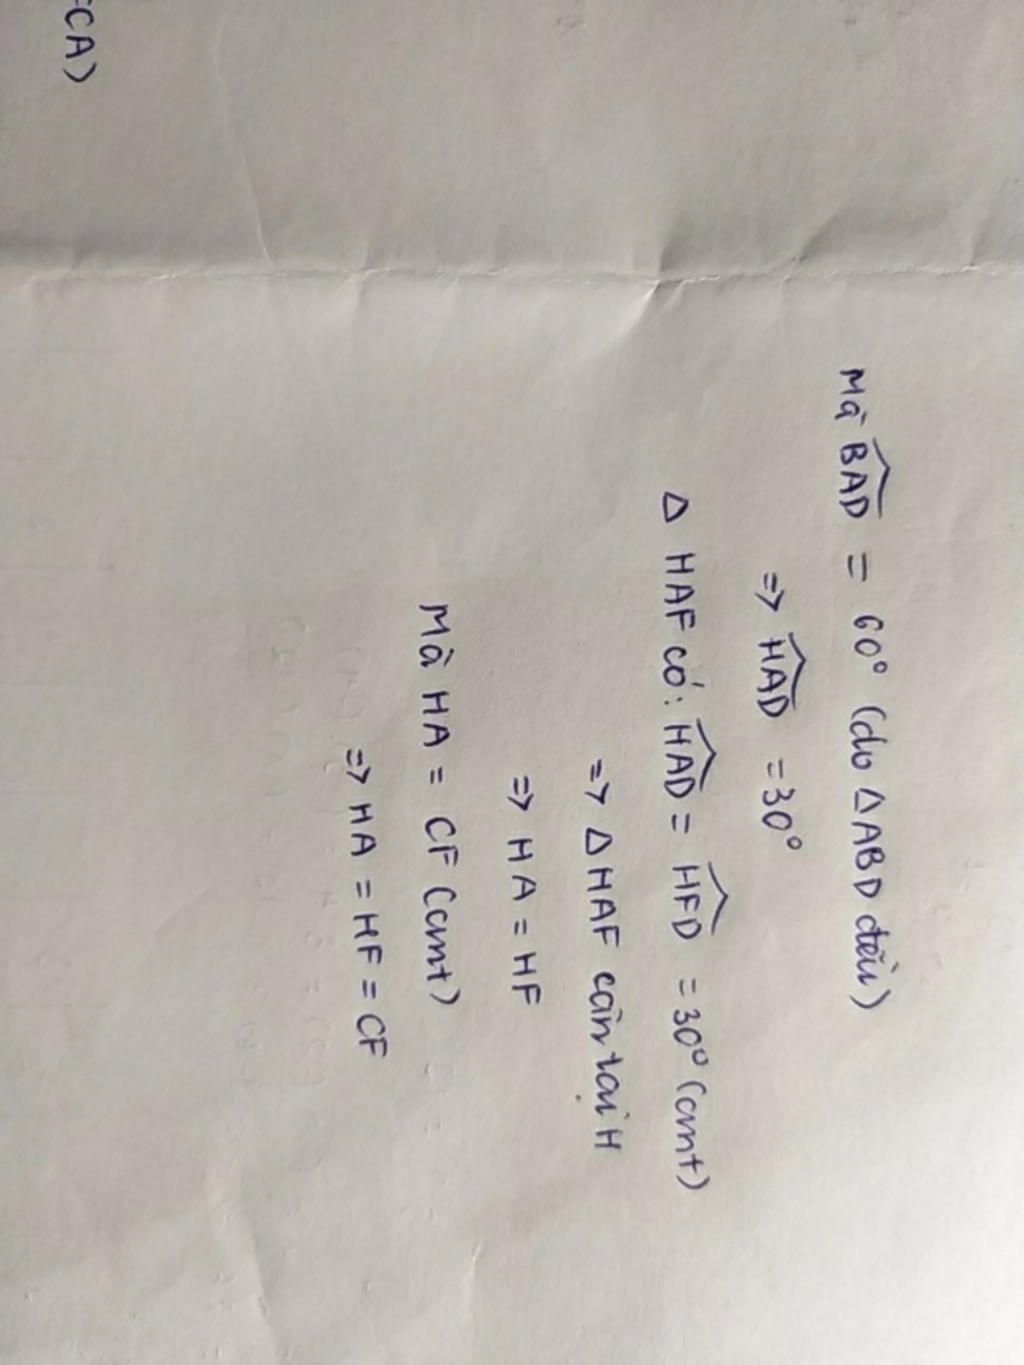 Mà BAD = 60° (do △ABD đều)
=> HAD = 30°
△ HAF có: HAD = HFD = 30° (cmt)
=> △HAF cân tại H
=> HA = HF
Mà HA = CF (cmt)
=> HA = HF = CF
CA)